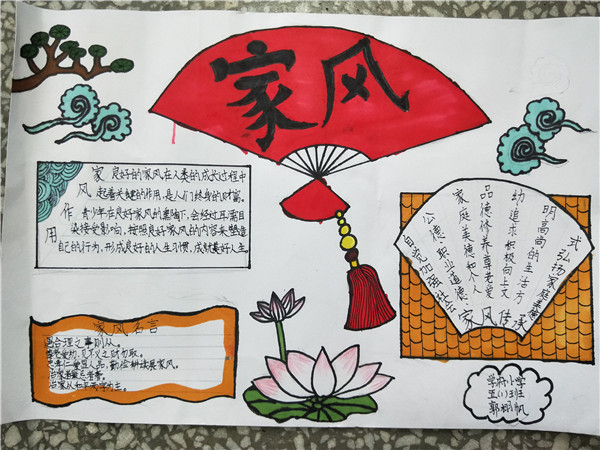 家风
家风作用
良好的家风在人类的成长过程中
起着关键的作用，是人们终身的财富。
青少年在良好家风的熏陶下，会经过耳濡目
染接受影响，按照良好家风的内容来塑造
自己的行为，形成良好的人生习惯，成就美好人生。
式弘扬家庭美德
明高尚的生活方
幼追求积极向上文
品德修养尊老爱
家庭美德和个人
公德职业道德
自觉加强社会
家风传承
家风名言
合理之事则从。
不义之财勿取。
勤俭耕读莫家风。
学府小学
五(1)班